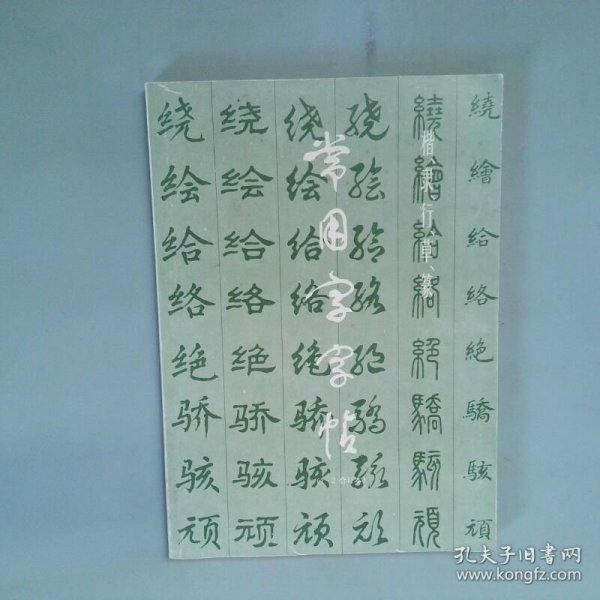 绕 绕 绕 绕 繞 繞
绘 绘 绘 绘 繪 繪
给 给 给 给 給 給
络 络 络 络 絡 絡
绝 绝 绝 绝 絕 絶
骄 骄 骄 骄 驕 驕
骇 骇 骇 骇 駭 駭
顽 顽 顽 顽 頑 頑
常用字字帖
楷、隶、行、草、篆
孔夫子旧书网
www.kongfz.com